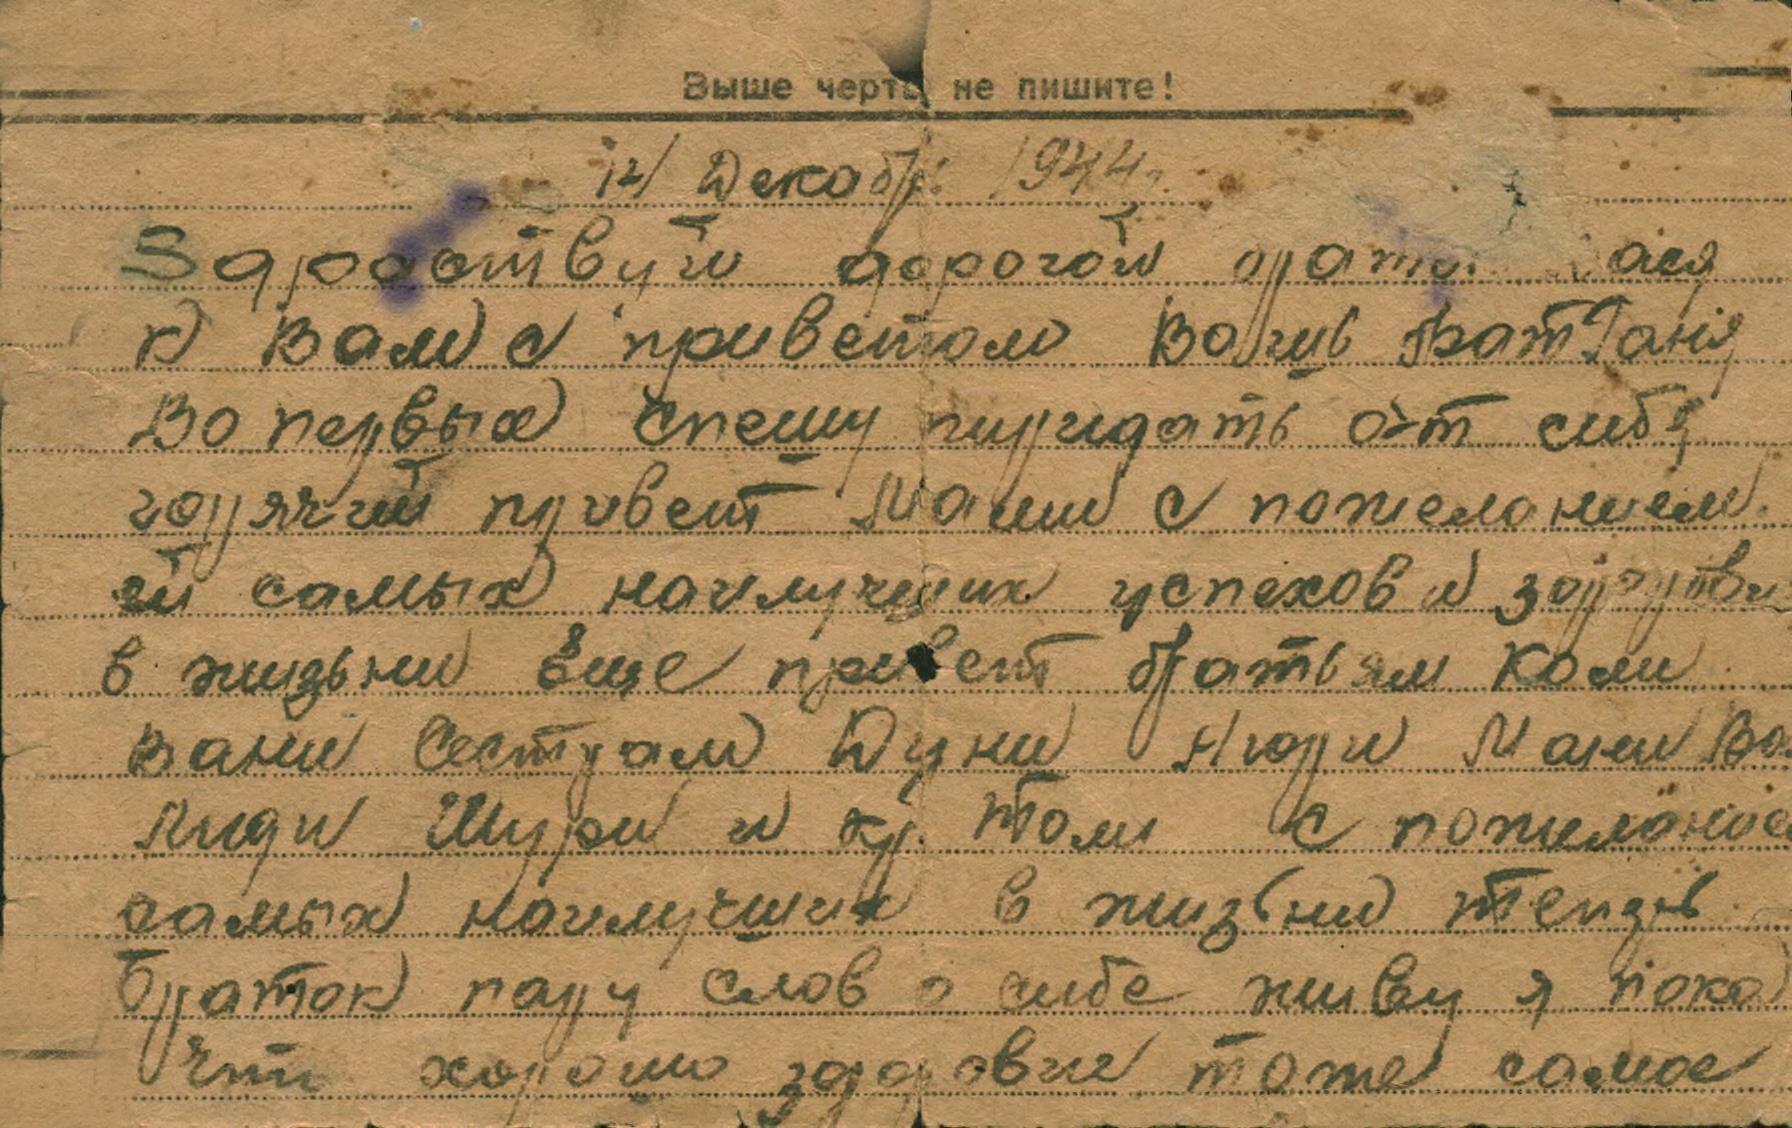 Выше черты не пишите!
12/ Декабр. 1944г.
Здраствуй дорогой брат Вася
к Вам с приветом Ваш брат Ваня
Во первых спешу пиридать от сибя
горячий привет Маши с пожеланием
ей самых наилучших успехов и
в жизьни Еще привет братьям Коли
Вани Сестрам Дуни Нюри Мани
Лиди Шури и кр. Толи с пожелание
самых наилучших в жизьни тепэрь
браток пару слов о сибе живу я пока
Что хорошо здоровие тоже самое